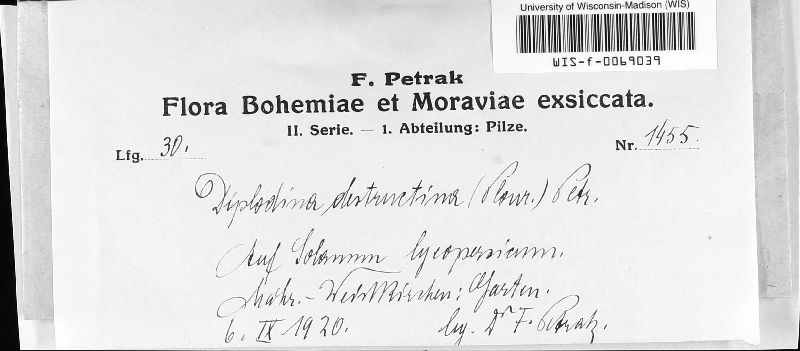 University of Wisconsin-Madison (WIS)
WIS-f-0069039
F. Petrak
Flora Bohemiae et Moraviae exsiccata.
II. Serie. — 1. Abteilung: Pilze.
Lfg. 30. Nr. 1455.
Diplodina destructiva (Plowr.) Petr.
Auf Solanum lycopersicum.
Mähr.-Weisskirchen: Garten.
6. IX 1920. lg. Dr F. Petrak.